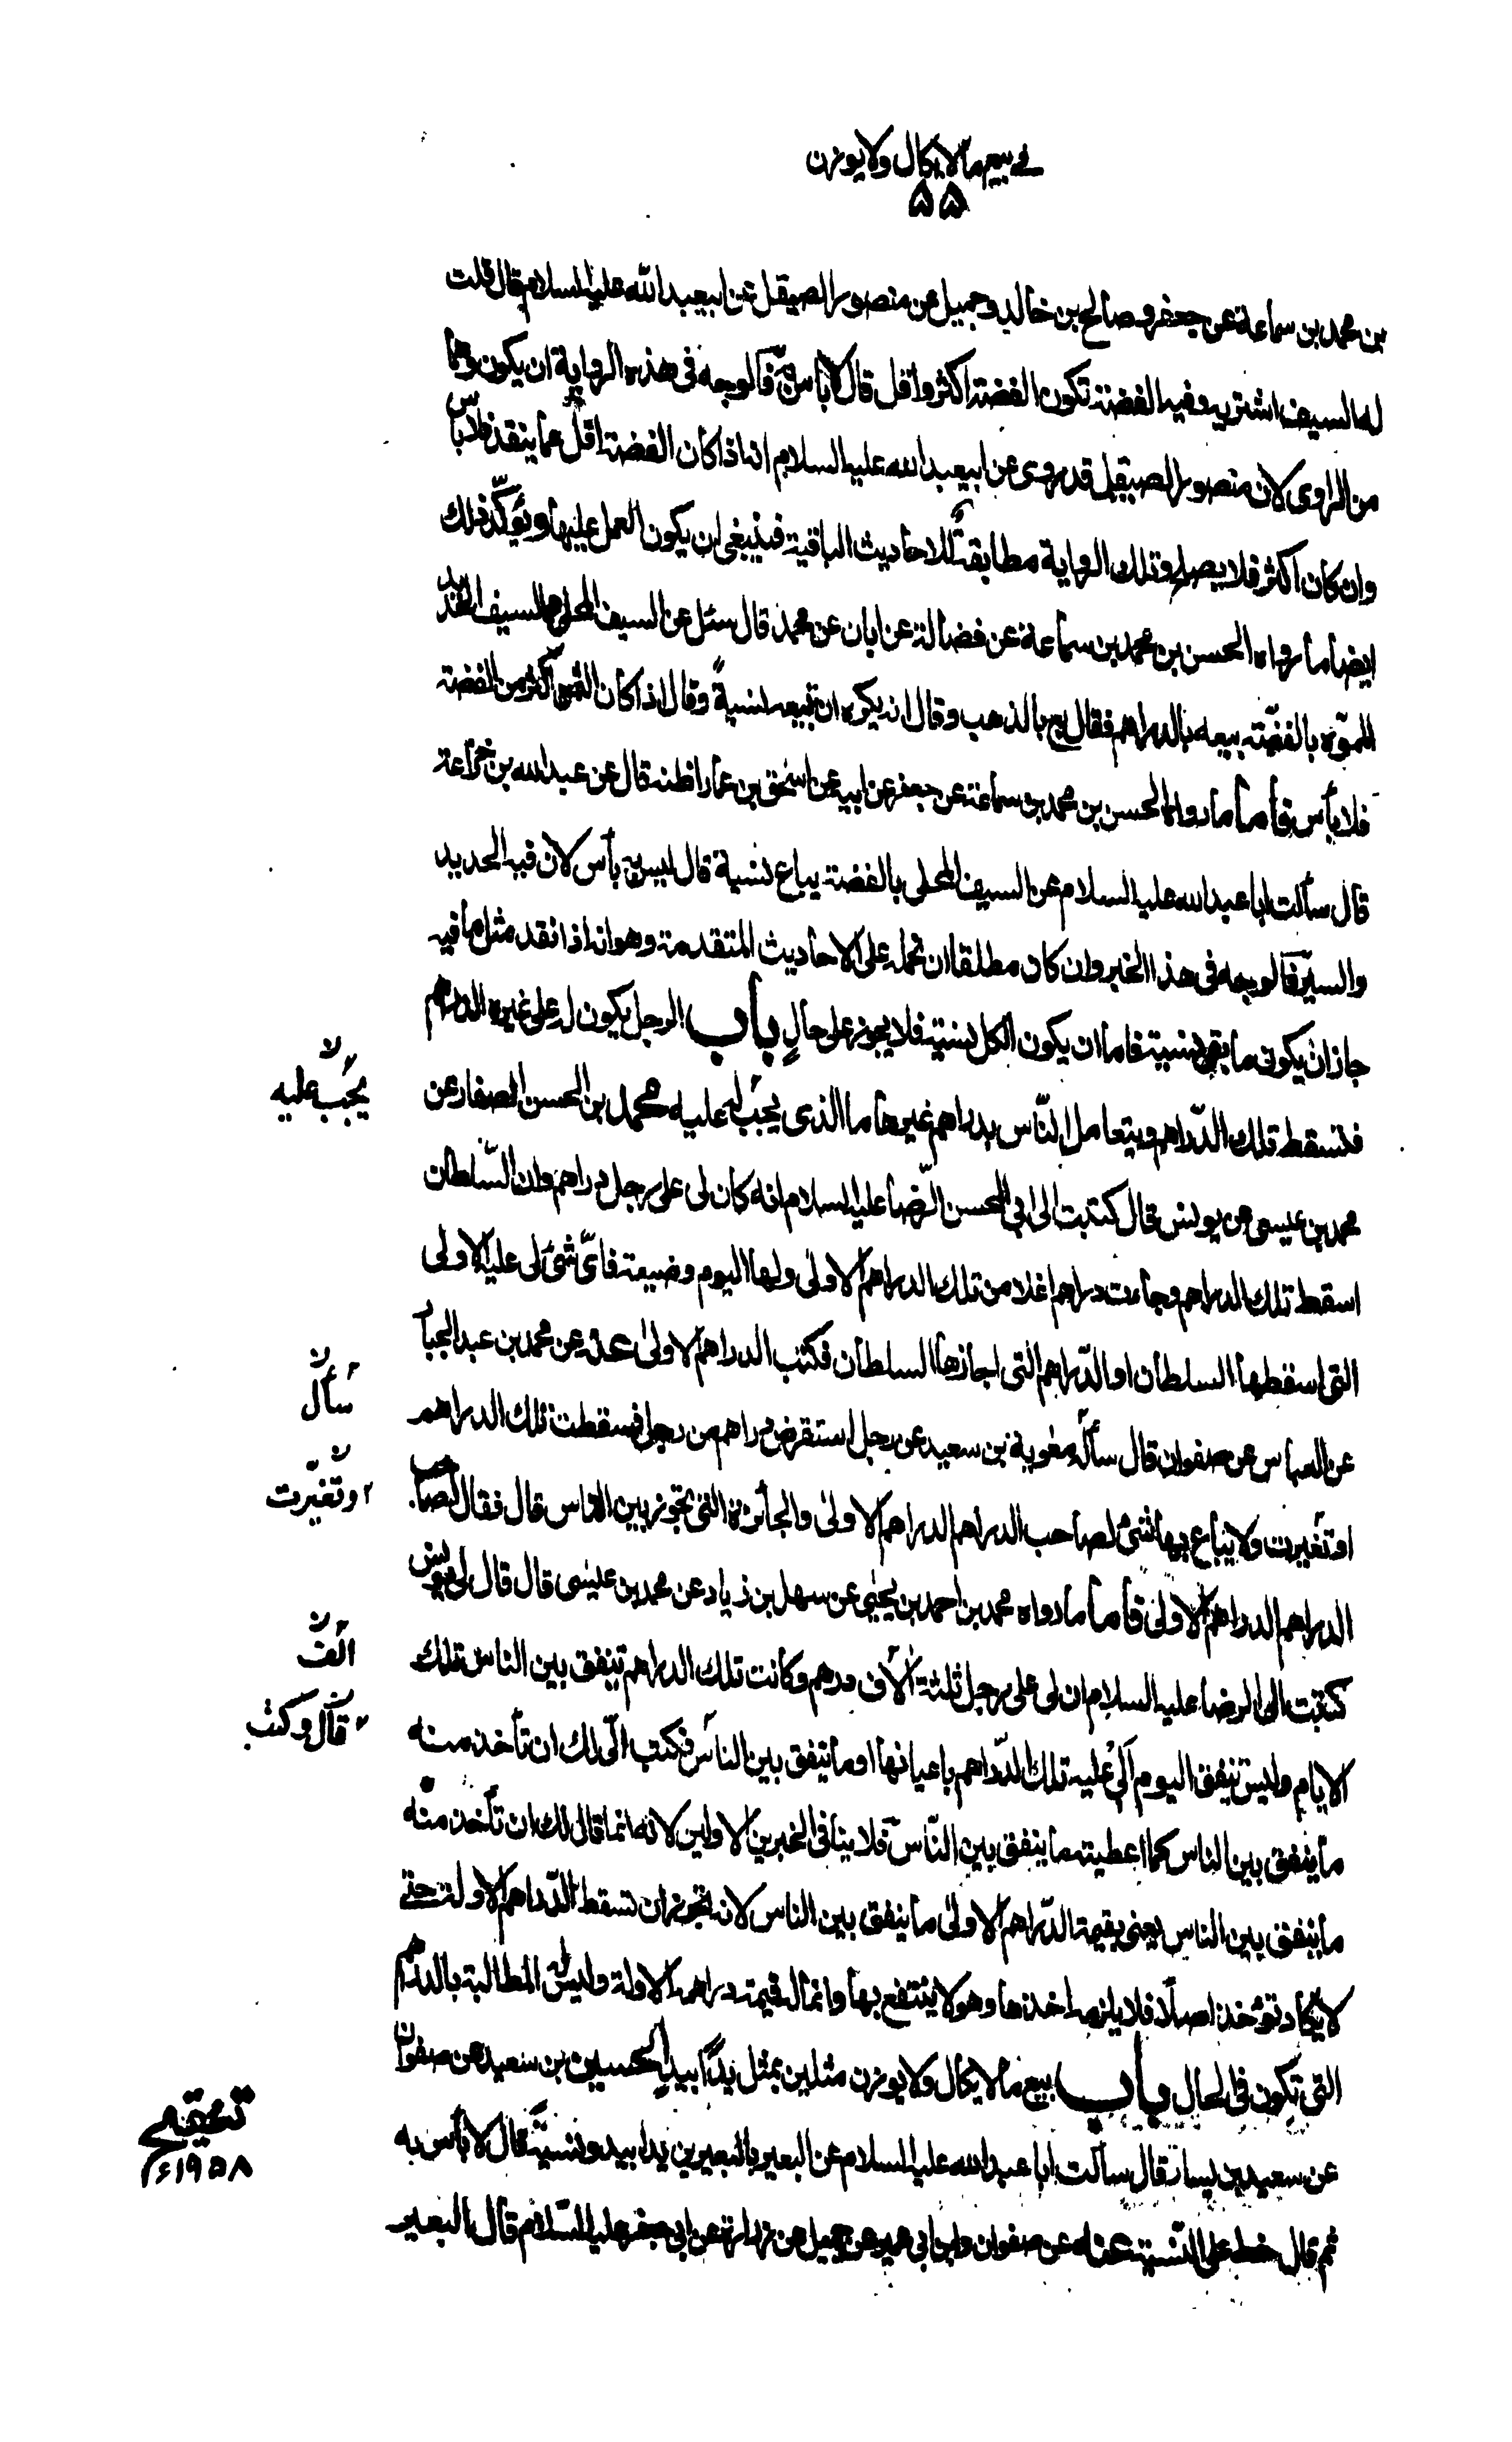 في بيع مالايكال ولايوزن
۵۵
بن محمد بن سماعة عن جعفر وصالح بن خالد وجميل عن منصور الصيقل عن ابيعبدالله عليه السلام قال قلت
له السيف اشتريه وفيه الفضة تكون الفضة اكثر واقل قال لا بأس به فالوجه فى هذه الرواية ان يكون وهما
من الراوى لان منصور الصيقل قد روى عن ابيعبدالله عليه السلام انه اذا كان الفضة اقل مما ينقد فلا بأس
وان كان اكثر فلا يصلح وتلك الرواية مطابقة للاحاديث الباقية فينبغى ان يكون العمل عليها ويؤكد ذلك
ايضا ما رواه الحسن بن محمد بن سماعة عن فضالة عن ابان عن محمد قال سئل عن السيف المحلى والسيف الحديد
المموّه بالفضّة بيعه بالدراهم فقال بع بالذهب وقال انه يكره ان تبيعه نسية وقال اذا كان الثمن اكثر من الفضة
فلا بأس فأما مارواه الحسن بن محمد بن سماعة عن جعفر عن ابيه عن اسحق بن عمار اظنه قال عن عبد الله بن خزاعة
قال سألت ابا عبد الله عليه السلام عن السيف المحلى بالفضة يباع نسية قال ليس به بأس لان فيه الحديد
والسير فالوجه فى هذا الخبر وان كان مطلقا ان نحمله على الاحاديث المتقدمة وهو انه اذا نقد مثل ما فيه
جاز ان يكون ما بقى نسية فاما ان يكون الكل نسية فلا يجوز على حال باب الرجل يكون له على غيره الدراهم
فتسقط تلك الدّراهم ويتعامل النّاس بدراهم غيرها ما الذى يجب له عليه محمد بن الحسن الصفار عن
محمد بن عيسى عن يونس قال كتبت الى ابى الحسن الرّضا عليه السلام انه كان لى على رجل دراهم وان السّلطان
اسقط تلك الدراهم وجاءت دراهم اغلا من تلك الدراهم الاولى ولها اليوم وضيعة فاىّ شئ لى عليه الاولى
التى اسقطها السلطان او الدّراهم التى اجازها السلطان فكتب الدراهم الاولى عنه عن محمد بن عبد الجبا
عن العباس عن صفوان قال سأله معوية بن سعيد عن رجل استقرض دراهم من رجل فسقطت تلك الدراهم
او تغيرت ولا يباع بها شئ لصاحب الدراهم الدراهم الاولى والجائزة التى تجوز بين الناس قال فقال لصاحب
الدراهم الدراهم الاولى فأما مارواه محمد بن احمد بن يحيى عن سهل بن زياد عن محمد بن عيسى قال قال لى يونس
كتبت الى الرضا عليه السلام ان لى على رجل ثلثة آلاف درهم وكانت تلك الدراهم تنفق بين الناس تلك
الايام وليس تنفق اليوم ألى عليه تلك الدّراهم باعيانها او ما ينفق بين الناس فكتب الىّ لك ان تأخذ منه
ما ينفق بين الناس كما اعطيته ما ينفق بين النّاس فلا ينافى الخبرين الاولين لانه انما قال لك ان تأخذ منه
ما ينفق بين الناس يعنى بقيمة الدّراهم الاولى ما ينفق بين الناس لانه يجوز ان تسقط الدّراهم الاولة حتى
لايكاد تؤخذ اصلا فلا يلزمه اخذها وهو لا ينتفع بها وانما له قيمة دراهمه الاولة وليس له المطالبة بالدراهم
التى تكون فى الحال باب بيع مالايكال ولايوزن مثلين بمثل يدًا بيدٍ الحسين بن سعيد عن صفوان
عن سعيد بن يسار قال سألت ابا عبد الله عليه السلام عن البعير بالبعيرين يدا بيد ونسيّة قال لا بأس به
ثم قال خط على النّسية عنه عن صفوان وابن ابى عمير عن جميل عن زرارة عن ابى جعفر عليه السّلام قال البعير
يجب عليه
سأل
وتغيّرت
الف
قال وكتب
تنقيح
۱۹۵۸ء